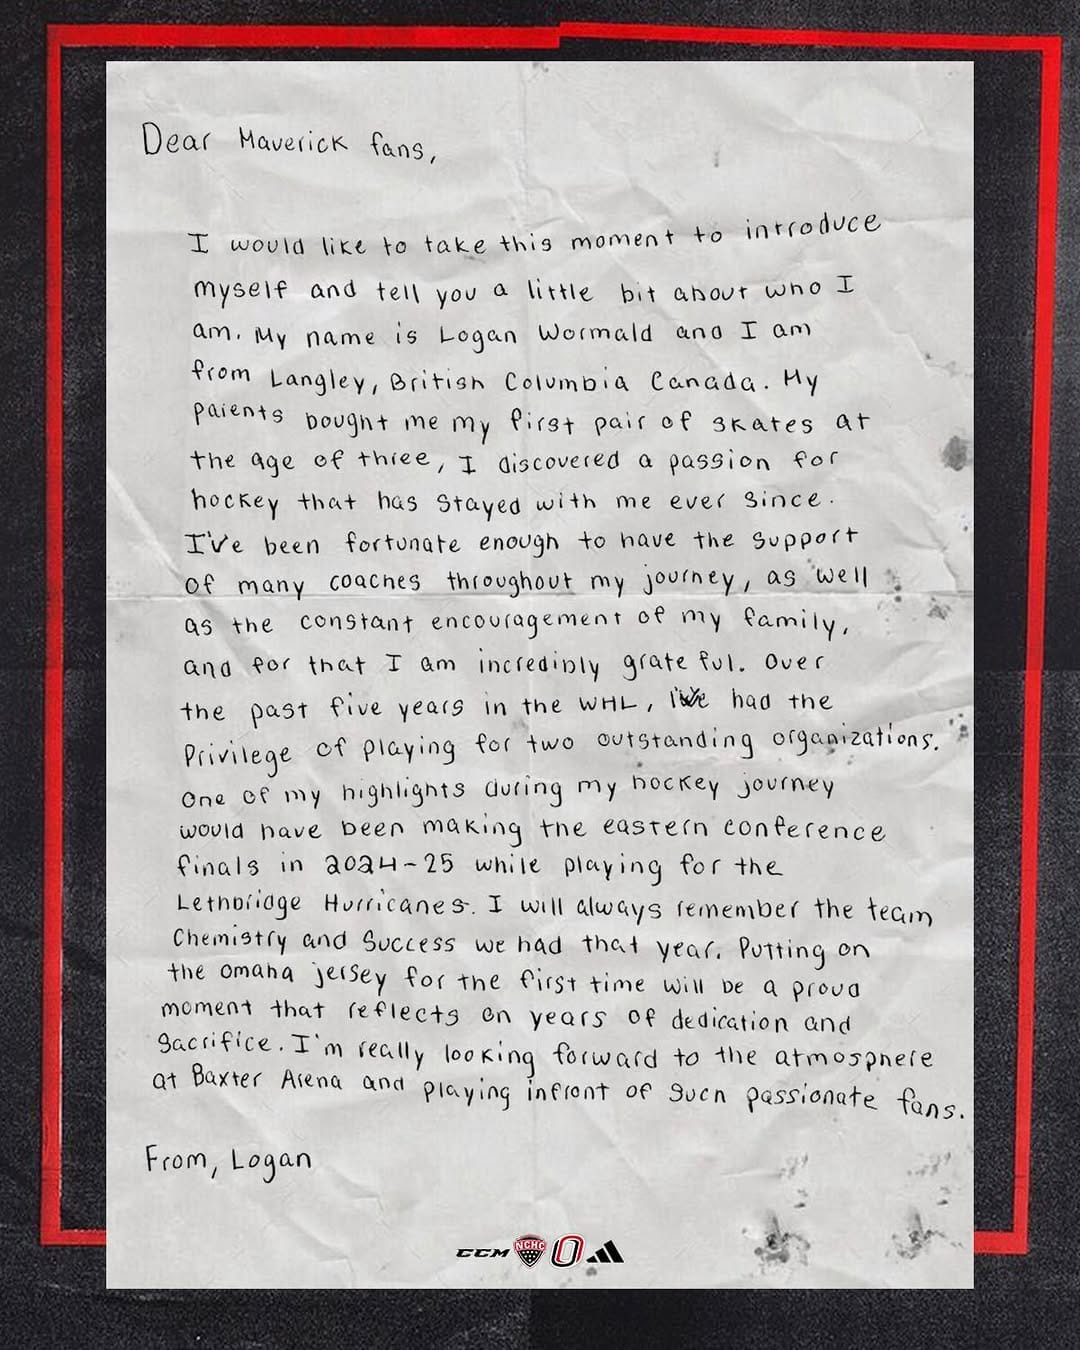 Dear Maverick fans,
I would like to take this moment to introduce
myself and tell you a little bit about who I
am. My name is Logan Wormald and I am
from Langley, British Columbia Canada. My
parents bought me my first pair of skates at
the age of three, I discovered a passion for
hockey that has stayed with me ever since.
I've been fortunate enough to have the support
of many coaches throughout my journey, as well
as the constant encouragement of my family,
and for that I am incredibly grateful. Over
the past five years in the WHL, I've had the
Privilege of playing for two outstanding organizations.
One of my highlights during my hockey journey
would have been making the eastern conference
finals in 2024-25 while playing for the
Lethbridge Hurricanes. I will always remember the team
Chemistry and Success we had that year. Putting on
the omaha jersey for the first time will be a proud
moment that reflects on years of dedication and
Sacrifice. I'm really looking forward to the atmosphere
at Baxter Arena and playing infront of such passionate fans.
From, Logan
CCM NCHC O